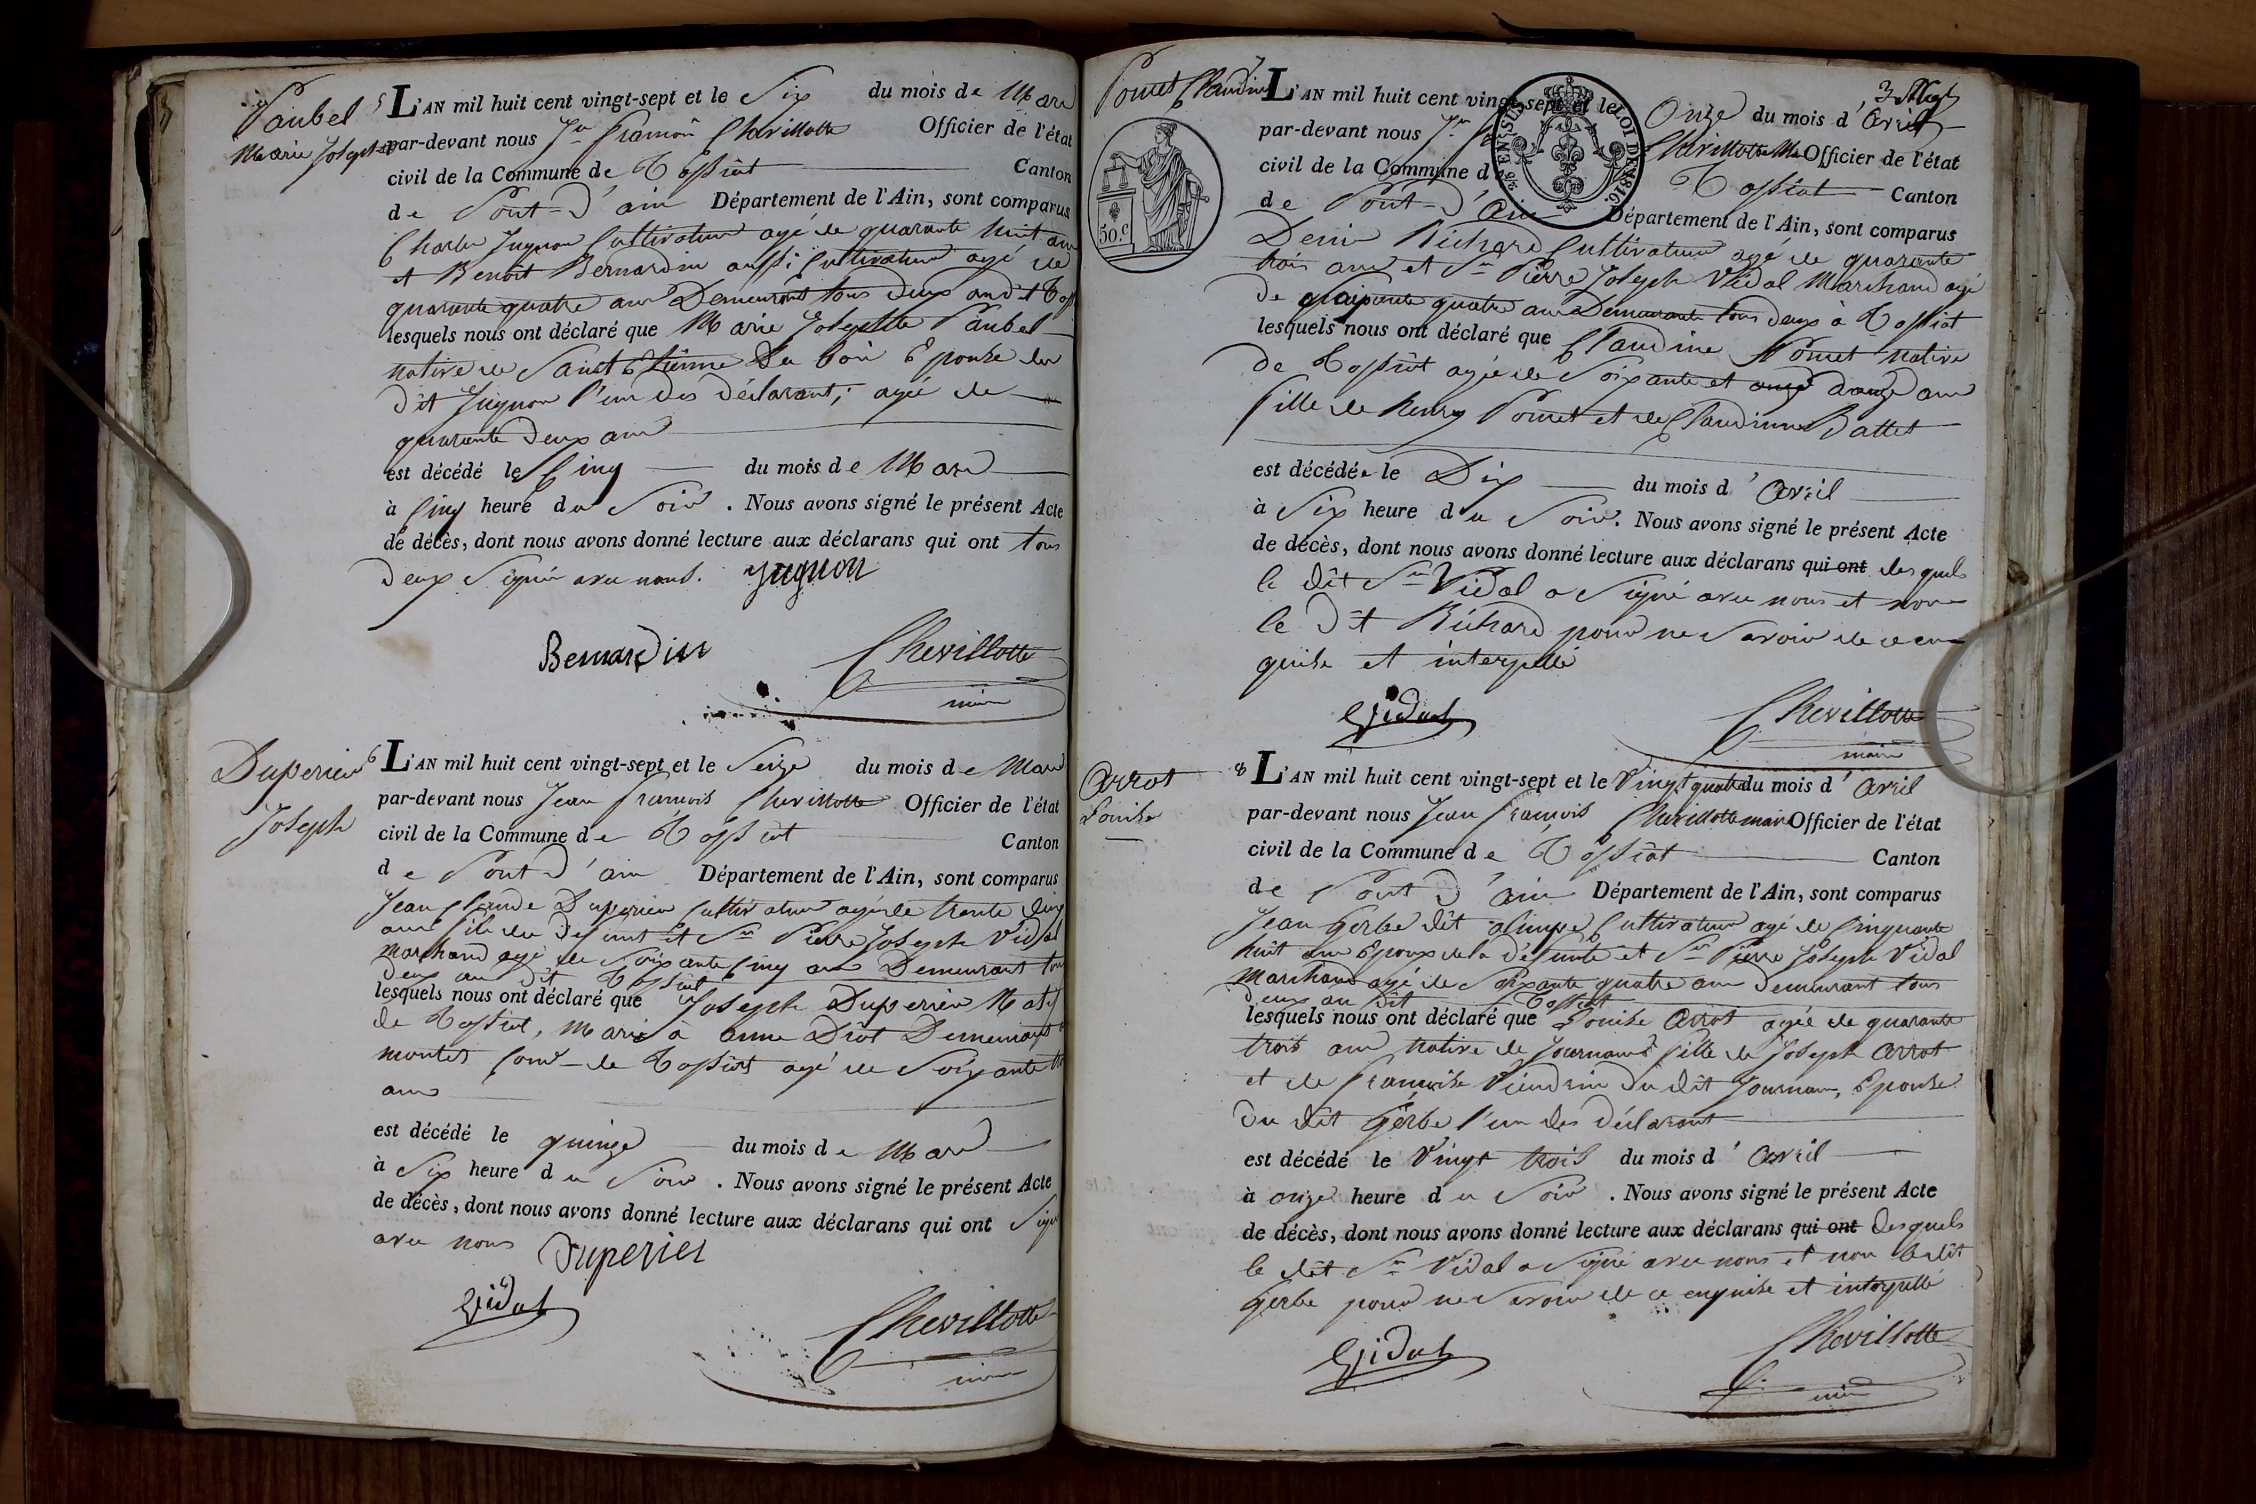 Paubel
Marie Josephte
5 L'AN mil huit cent vingt-sept et le Six du mois de Mars
par-devant nous Jn françois Chevillotte Officier de l'état
civil de la Commune de Tossiat Canton
de Pont-d'ain Département de l'Ain, sont comparus
Charles Jugnon Cultivateur agé de quarante huit ans
et Benoit Bernardin aussi Cultivateur agé de
quarante quatre ans Demeurant tous deux audit
lesquels nous ont déclaré que Marie Josephte Paubel
native de Sainct Etienne Du bois Epouse du
dit Jugnon l'un des déclarant; agée de
quarante deux ans
est décédé le Cinq du mois de Mars
à Cinq heure du Soir. Nous avons signé le présent Acte
de décès, dont nous avons donné lecture aux déclarans qui ont tous
deux Signé avec nous. Jugnon
Bernardin Chevillotte
maire
Duperier
Joseph
6 L'AN mil huit cent vingt-sept et le Seize du mois de Mars
par-devant nous Jean francois Chevillotte Officier de l'état
civil de la Commune de Tossiat Canton
de Pont d'ain Département de l'Ain, sont comparus
Jean Claude Duperier Cultivateur agé de trente
ans fils du Defunt et Sr Pierre Joseph Vidal
marchand agé de Soixante Cinq ans Demeurant
deux au dit Tossiat
lesquels nous ont déclaré que Joseph Duperier Natif
de Tossiat, Marié à anne Diot Demeurant
montet Comne de Tossiat agé de Soixante
ans
est décédé le quinze du mois de Mars
à Six heure du Soir. Nous avons signé le présent Acte
de décès, dont nous avons donné lecture aux déclarans qui ont Signé
avec nous Duperier
Vidal
Chevillotte
maire
Pomet Claudine
7 L'AN mil huit cent vingt-sept et le Onze du mois d'Avril
par-devant nous Jn Chevillotte Officier de l'état
civil de la Commune d Tossiat Canton
de Pont-d'Ain Département de l'Ain, sont comparus
50.c
LOI DE 1816.
Denis Richard Cultivateur agé de quarante
trois ans et Sr Pierre Joseph Vidal Marchand agé
de Soixante quatre ans Demeurants tous deux à Tossiat
lesquels nous ont déclaré que Claudine Pomet native
de Tossiat agée de Soixante et onze douze ans
fille de henry Pomet et de Claudinne
est décédée le Dix du mois d'Avril
à Six heure du Soir. Nous avons signé le présent Acte
de décès, dont nous avons donné lecture aux déclarans qui ont desquels
le dit Sr Vidal a Signé avec nous et non
le dit Richard pour ne Savoir de ce en
quise et interpellé
Vidal Chevillotte
maire
Arrot
Louise
8 L'AN mil huit cent vingt-sept et le Vingt quatre du mois d'Avril
par-devant nous Jean francois Chevillotte maire Officier de l'état
civil de la Commune de Tossiat Canton
de Pont d'ain Département de l'Ain, sont comparus
Jean Gerbe dit Cultivateur agé de Cinquante
huit ans Epoux de la défunte et Sr Pierre Joseph Vidal
Marchand agé de Soixante quatre ans demeurant tous
deux au dit Tossiat
lesquels nous ont déclaré que Louise Arrot agée de quarante
trois ans native de Journans fille de Joseph Arrot
et de francoise du dit Journans, Epouse
Du dit Gerbe l'un des Déclarant
est décédé le Vingt trois du mois d'avril
à onze heure du Soir. Nous avons signé le présent Acte
de décès, dont nous avons donné lecture aux déclarans qui ont Desquels
le dit Sr Vidal a Signé avec nous et non le dit
Gerbe pour ne Savoir de ce enquise et interpellé
Vidal Chevillotte
maire